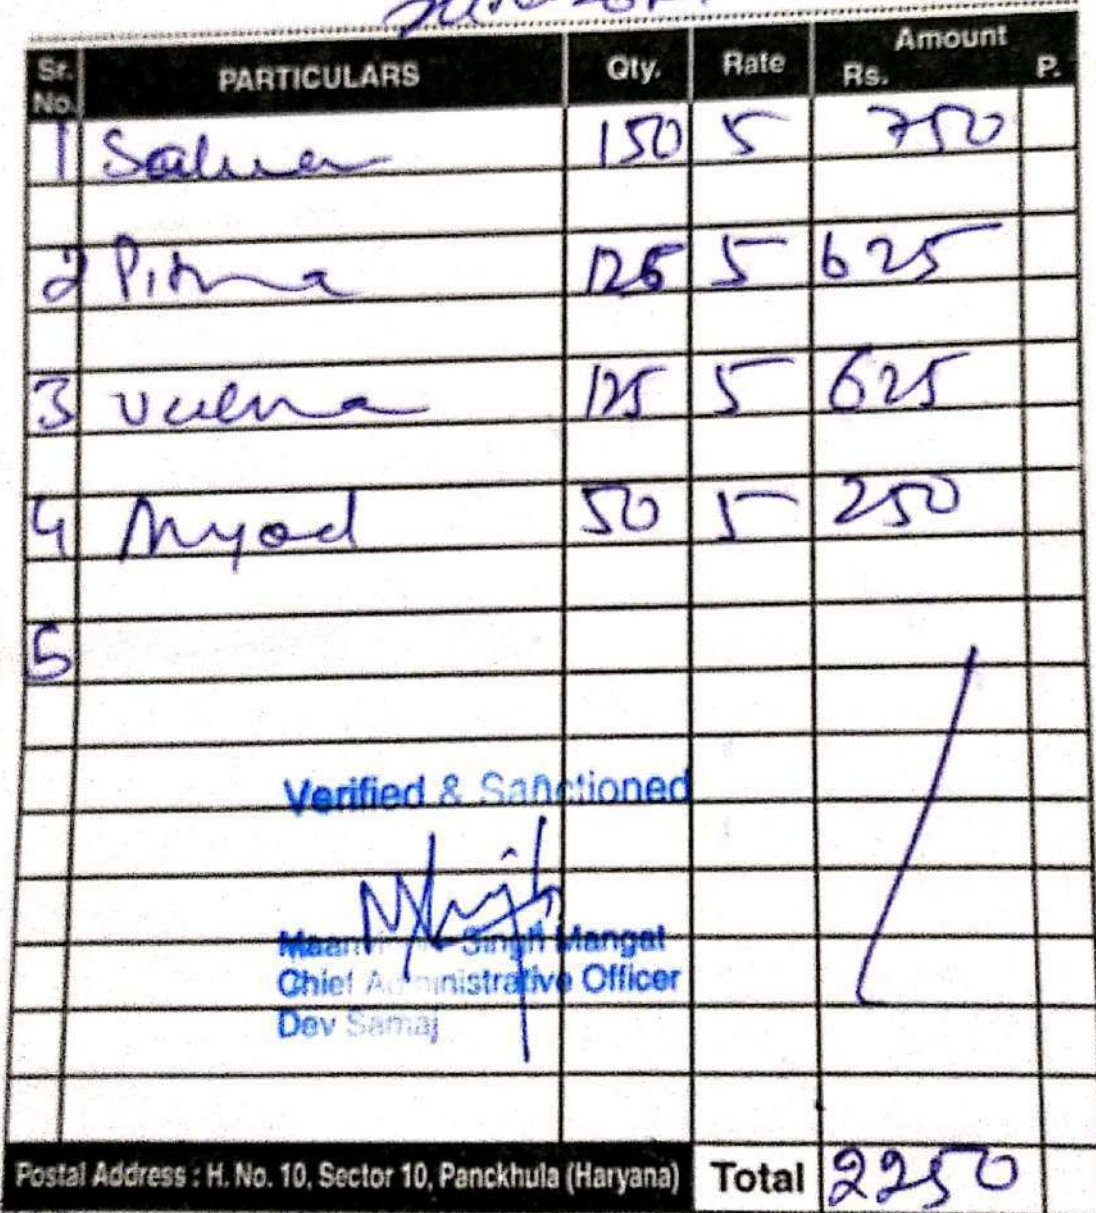 Sr. No. PARTICULARS Qty. Rate Amount Rs. P.
1 150 5 750
2 125 5 625
3 125 5 625
4 50 5 250
5
Verified & Sanctioned
Singh Mangat
Chief Administrative Officer
Dev Samaj
Postal Address : H. No. 10, Sector 10, Panckhula (Haryana) Total 2250